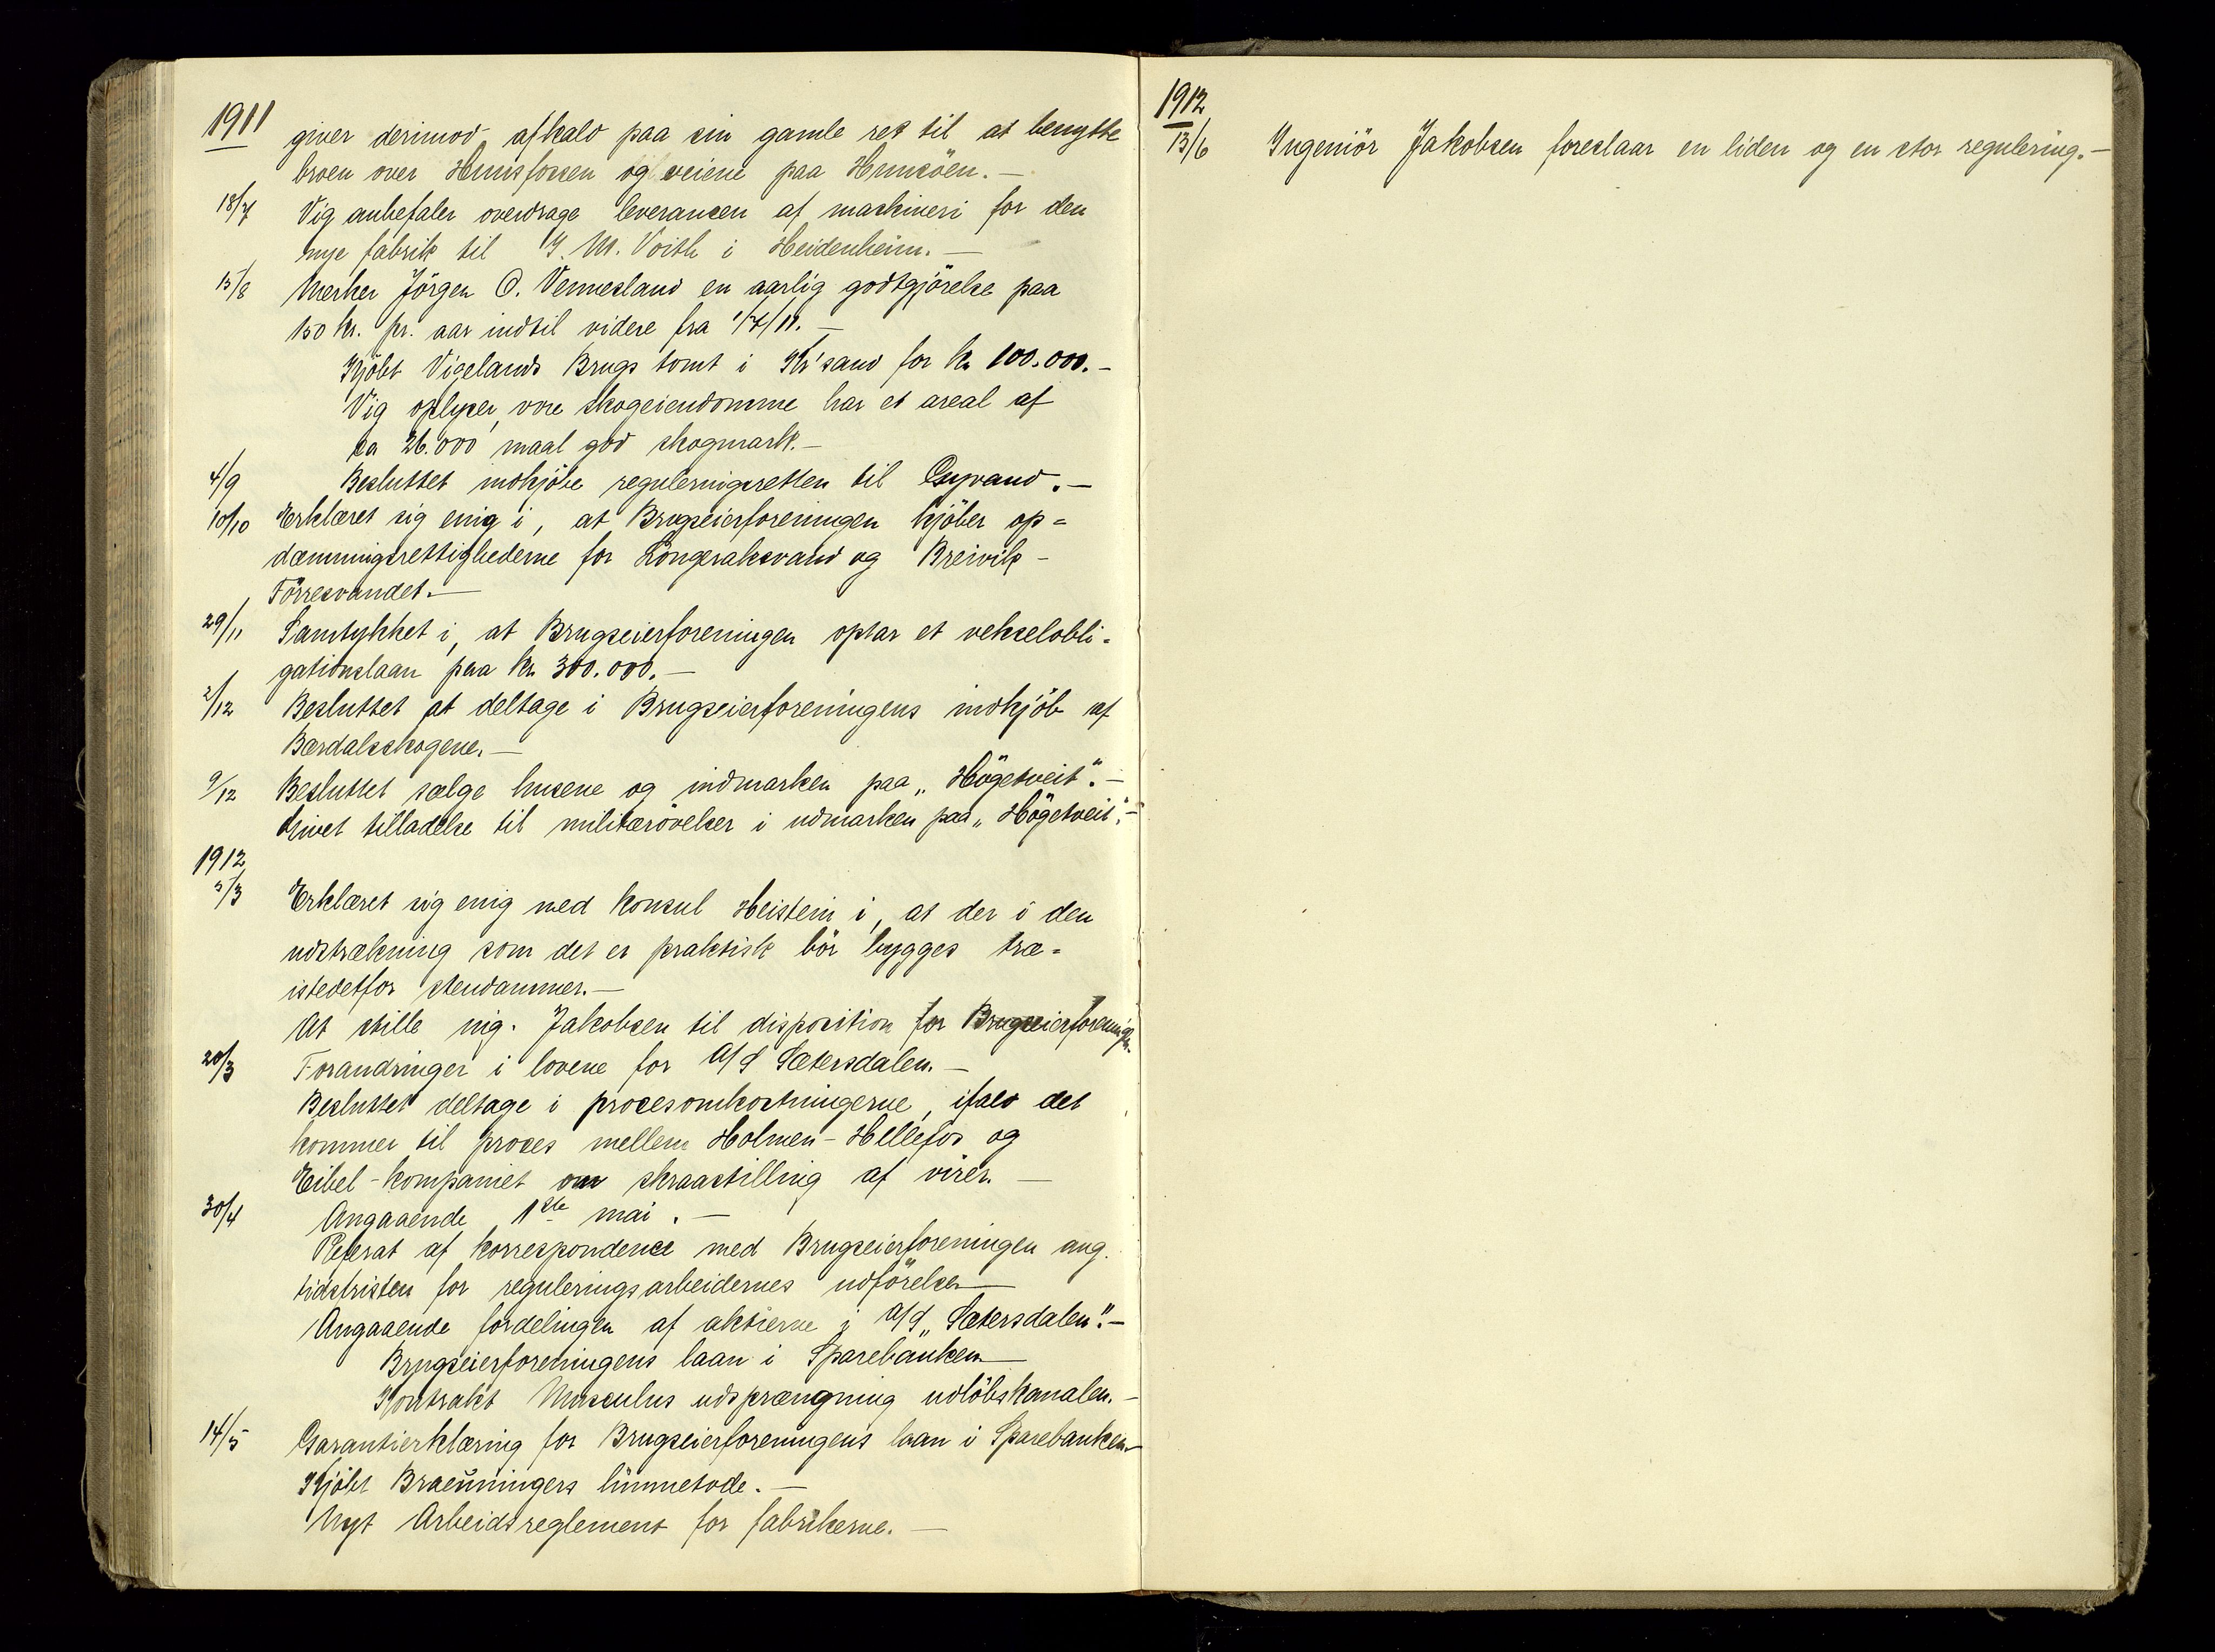 1911
giver derimod afkald paa sin gamle ret til at benytte
broen over Hunsfossen og veiene paa Hunsöen.—
18/7 Vig anbefaler overdrage leverancen af maskineri for den
nye fabrik til J. M. Voith i Heidenheim.—
15/8 Merker Jörgen O. Vennesland en aarlig godtgjörelse paa
150 kr. pr. aar indtil videre fra 1/7/11.—
Kjöbt Vigelands Brugs tomt i Kr'sand for kr 100.000.—
Vig oplyser, vore skogeiendomme har et areal af
ca 26.000 maal god skogmark.—
4/9 Besluttet indkjöbe reguleringsretten til Gyvand.—
10/10 Erklæret sig enig i, at Brugseierforeningen kjöber op=
dæmningsrettighederne for Longeraksvand og Breivik-
Förresvandet.—
29/11 Samtykket i, at Brugseierforeningen optar et vekselobli=
gationslaan paa kr. 300.000.—
2/12 Besluttet at deltage i Brugseierforeningens indkjöb af
Bærdalsskogene.—
9/12 Besluttet sælge husene og indmarken paa „Högetveit".—
Givet tilladelse til militærövelser i udmarken paa „Högetveit".—
1912
5/3 Erklæret sig enig med konsul Heistein i, at der i den
udstrækning som det er praktisk bör bygges træ=
istedetfor stendammer.—
At stille ing. Jakobsen til disposition for Brugseierforeningen.
20/3 Forandringer i lovene for A/S Sætersdalen.—
Besluttet deltage i procesomkostningerne, ifald det
kommer til proces mellem Holmen-Hellefos og
Eibel-kompaniet om skraastilling af virer.—
30/4 Angaaende 1ste mai.—
Referat af korrespondence med Brugseierforeningen ang.
tidsfristen for reguleringsarbeidernes udförelse.—
Angaaende fordelingen af aktierne i A/S „Sætersdalen".—
Brugseierforeningens laan i Sparebanken.—
Kontrakt Masculus udsprængning udlöbskanalen.—
14/5 Garantierklæring for Brugseierforeningens laan i Sparebanken.—
Kjöbt Braeŭningers limmetode.—
Nyt Arbeidsreglement for fabrikerne.—
1912
13/6 Ingeniör Jakobsen foreslaar en liden og en stor regulering.—